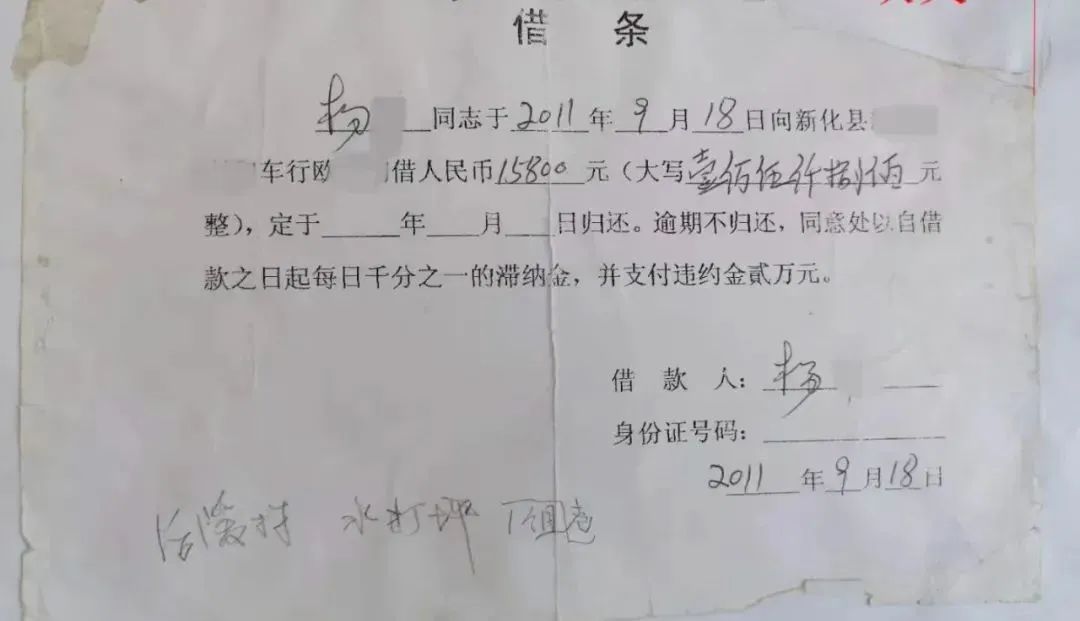 借 条
杨 同志于 2011 年 9 月 18 日向新化县
车行欧 借人民币 15800 元（大写壹佰伍仟捌佰元
整），定于 年 月 日归还。逾期不归还，同意处以自借
款之日起每日千分之一的滞纳金，并支付违约金贰万元。
借 款 人： 杨
身份证号码：
2011 年 9 月 18 日
水打坪